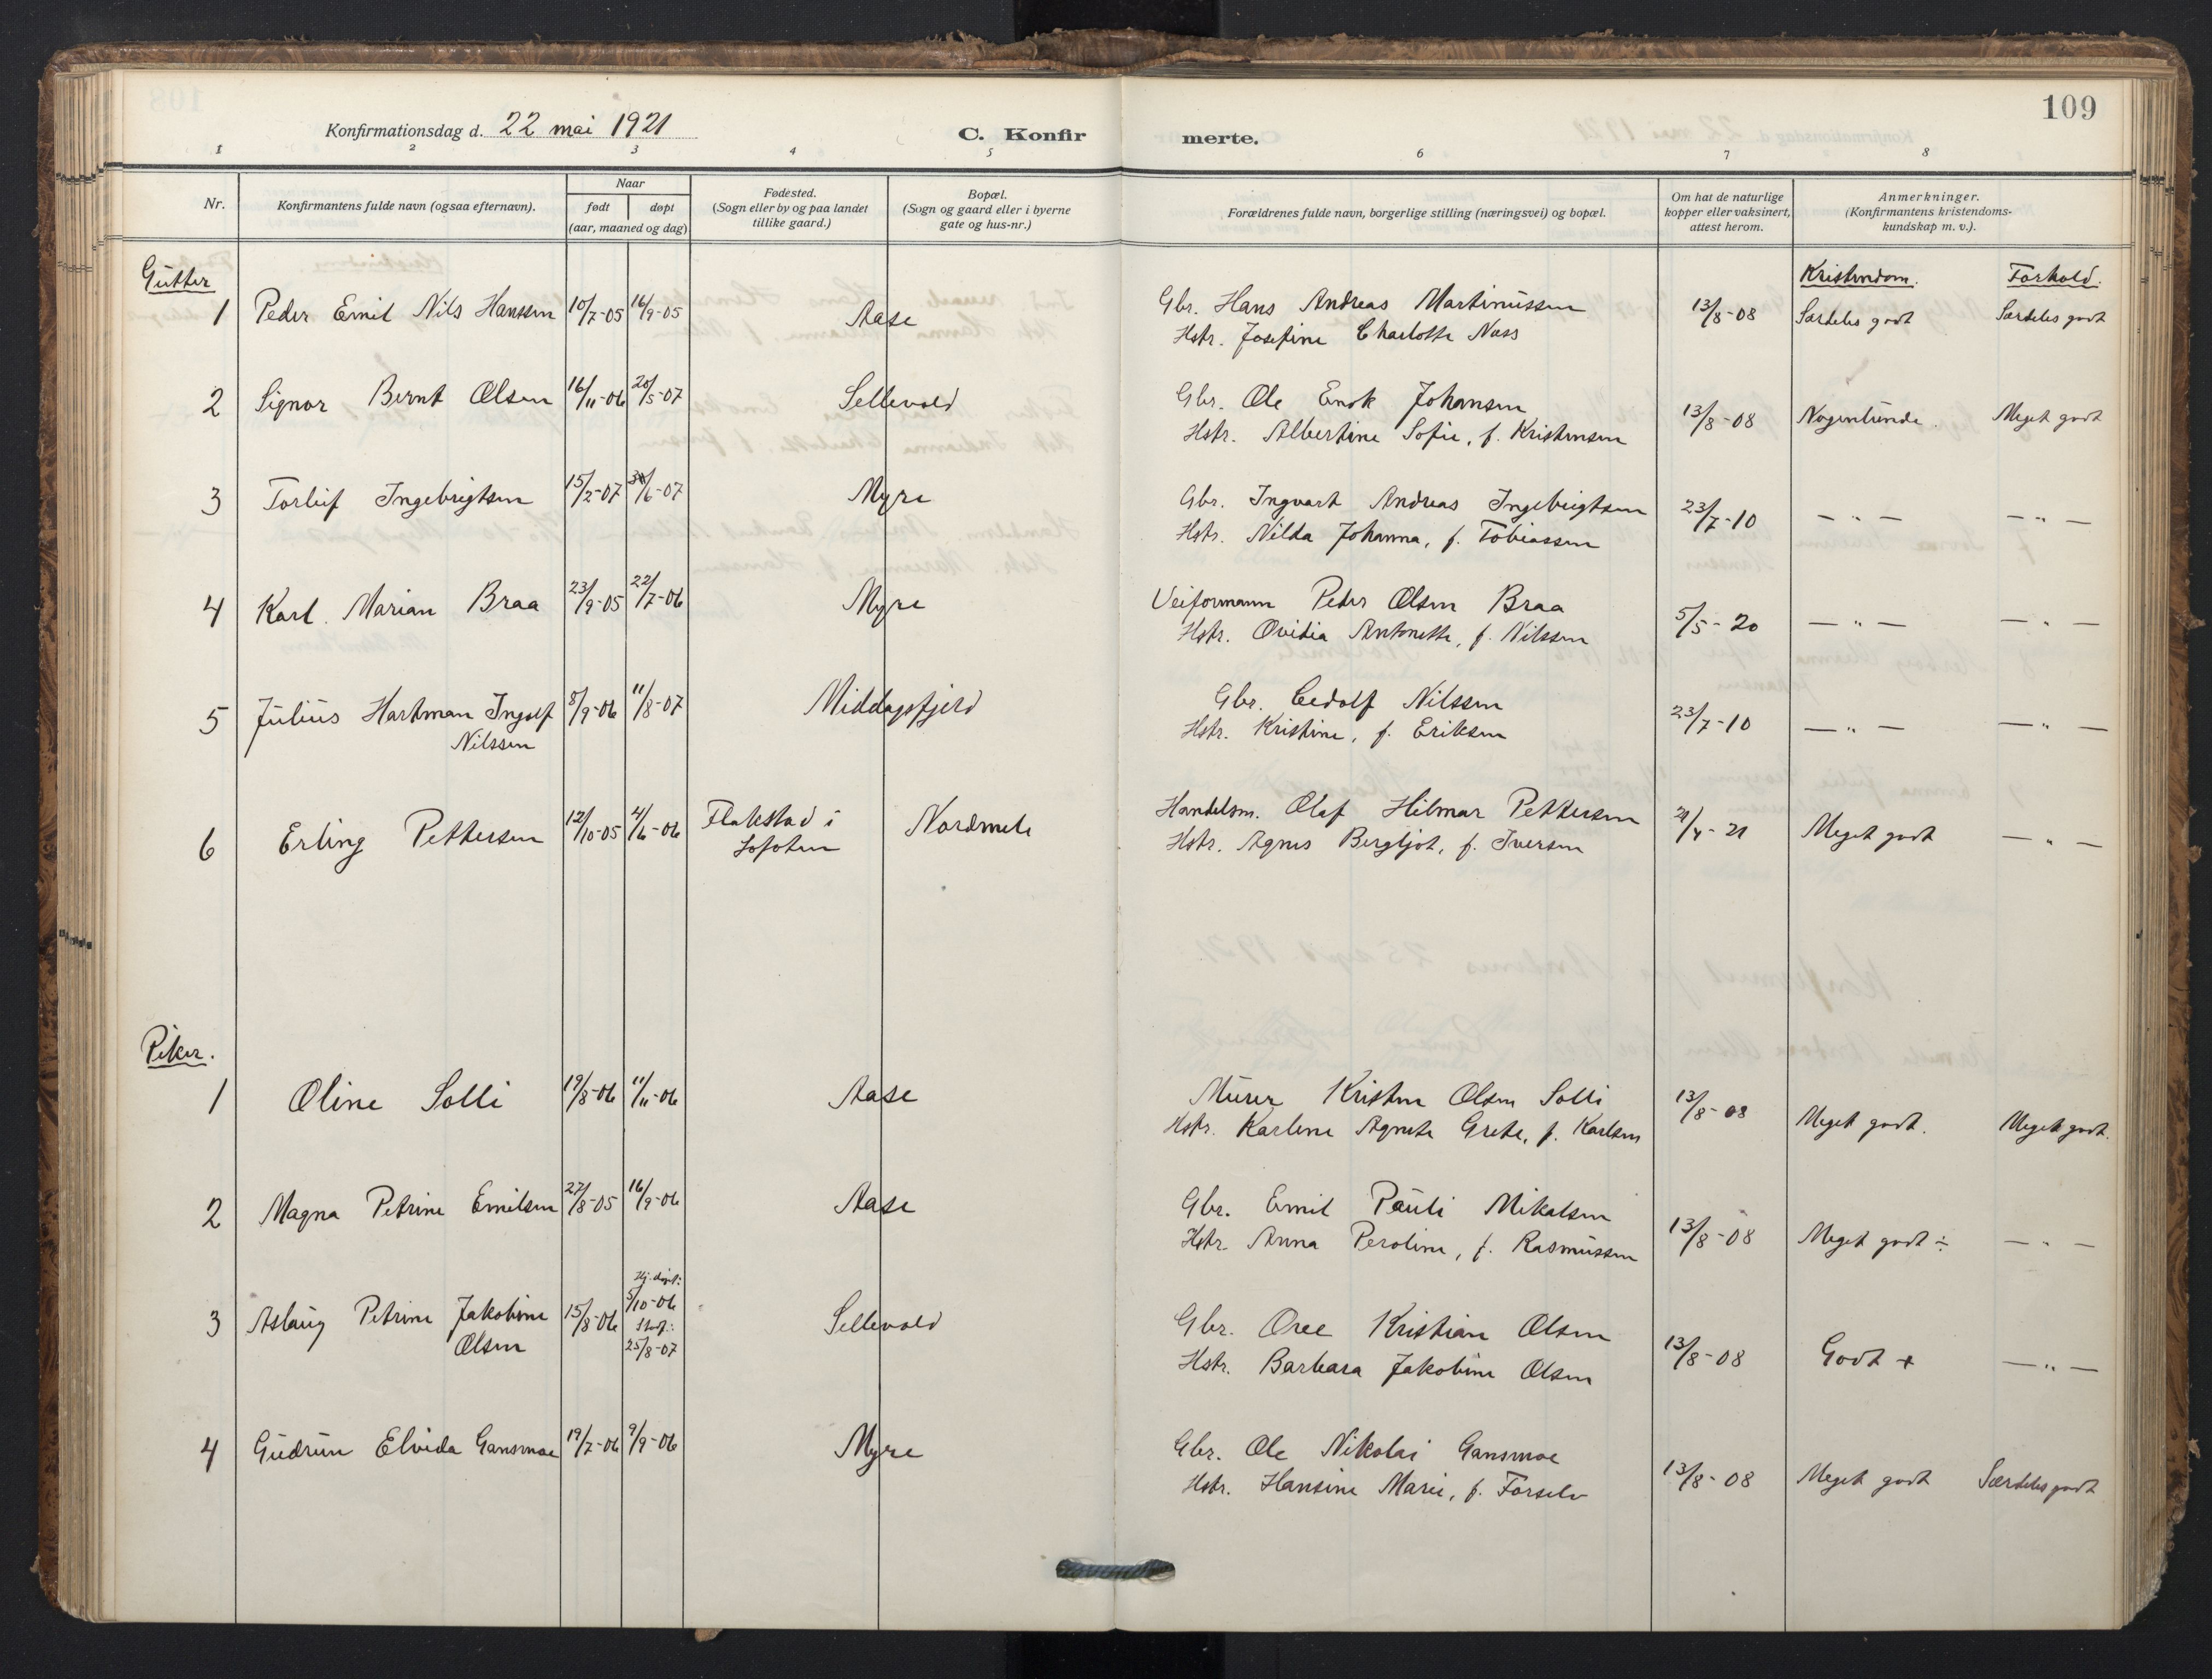 109
Konfirmationsdag d. 22 mai 1921
C. Konfirmerte.
1 2 3 4 5 6 7 8
Nr.
Konfirmantens fulde navn (ogsaa efternavn).
Naar
født døpt
(aar, maaned og dag)
Fødested.
(Sogn eller by og paa landet
tillike gaard.)
Bopæl.
(Sogn og gaard eller i byerne
gate og hus-nr.)
Forældrenes fulde navn, borgerlige stilling (næringsvei) og bopæl.
Om hat de naturlige
kopper eller vaksinert,
attest herom.
Anmerkninger.
(Konfirmantens kristendoms-
kundskap m. v.).
Gutter
Kristendom. Forhold.
1 Peder Emil Nils Hanssen 10/7-05 16/9-05 Aase Gbr. Hans Andreas Martinussen 13/8-08 Særdeles godt Særdeles godt
Hstr. Josefine Charlotte Næss
2 Signor Bernt Olsen 16/11-06 20/5-07 Sellevold Gbr. Ole Enok Johansen 13/8-08 Nogenlunde. Meget godt
Hstr. Albertine Sofie, f. Kristensen
3 Torleif Ingebrigtsen 15/2-07 30/6-07 Myre Gbr. Ingvart Andreas Ingebrigtsen 23/7-10 — " — — " —
Hstr. Nilda Johanna, f. Tobiassen
4 Karl. Marian Braa 23/9-05 22/7-06 Myre Veiformann Peder Olsen Braa 5/5-20 — " — — " —
Hstr. Ovidia Antonette, f. Nilssen
5 Julius Hartman Ingolf 8/9-06 11/8-07 Middagsfjord Gbr. Cedolf Nilssen 23/7-10 — " — — " —
Nilssen Hstr. Kristine, f. Eriksen
6 Erling Pettersen 12/10-05 4/6-06 Flakstad i Nordmele Handelsm. Olaf Hilmar Pettersen 21/4-21 Meget godt — " —
Lofoten Hstr. Agnes Bergljot, f. Iversen
Piker.
1 Oline Solli 19/8-06 11/11-06 Aase Murer Kristen Olsen Solli 13/8-08 Meget godt. Meget godt.
Hstr. Karline Agnete Grete, f. Karlsen
2 Magna Petrine Emilsen 27/8-05 16/9-06 Aase Gbr. Emil Pauli Mikalsen 13/8-08 Meget godt ÷ — " —
Hstr. Anna Peroline, f. Rasmussen
Hj. døpt:
3 Aslaug Petrine Jakobine 15/8-06 5/10-06 Sellevold Gbr. Oree Kristian Olsen 13/8-08 Godt + — " —
Stadf.:
Olsen 25/8-07 Hstr. Barbara Jakobine Olsen
4 Gudrun Elvida Gansmoe 19/7-06 9/9-06 Myre Gbr. Ole Nikolai Gansmoe 13/8-08 Meget godt Særdeles godt
Hstr. Hansine Marie, f. Forselv